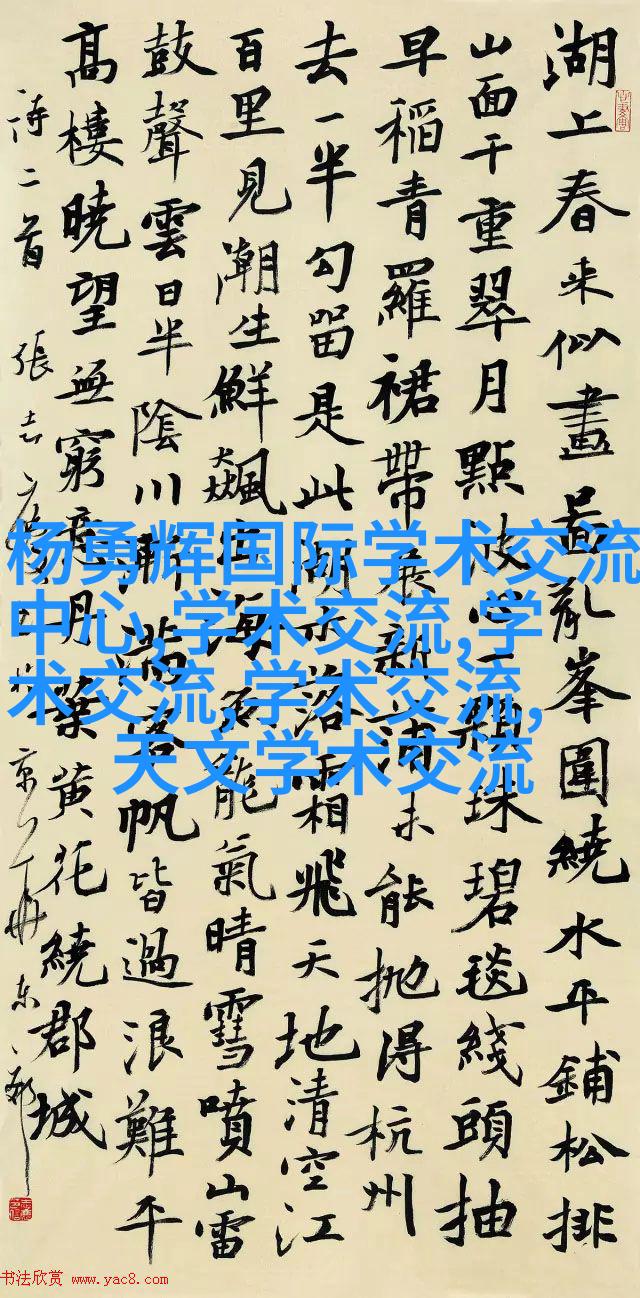 湖上春来似畫啚亂峯圍繞水平鋪松排
山面千重翠月點波心一顆珠碧毯綫頭抽
早稻青羅裙帶展新蒲未能抛得杭州
去一半勾留是此湖木落霜飛天地清空江
百里見潮生鮮飆出海魚龍氣晴雪噴山雷
鼓聲雲日半陰川漸滿客帆皆過浪難平
高樓曉望無窮意丹葉黄花繞郡城
詩二首 張志
杨勇辉国际学术交流
中心,学术交流,学
术交流,学术交流,
天文学术交流
书法欣赏 www.yac8.com